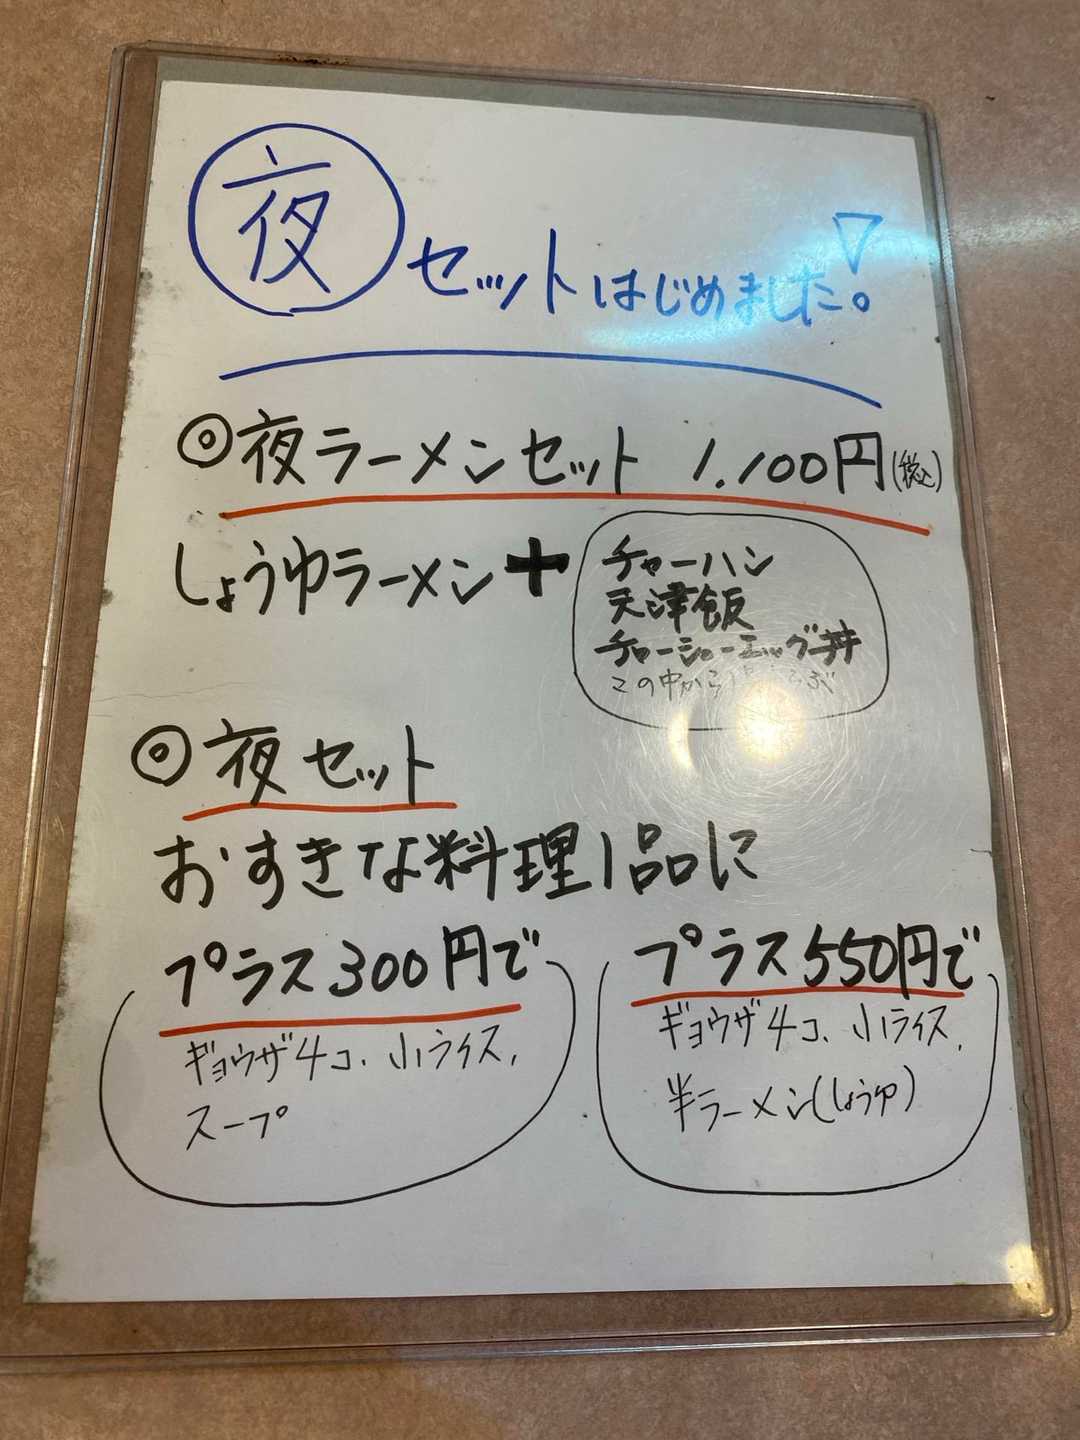 夜セットはじめました!
◎夜ラーメンセット 1,100円(税込)
しょうゆラーメン+
チャーハン
天津飯
チャーシューエッグ丼
この中から
◎夜セット
おすきな料理1品に
プラス300円で
ギョウザ4コ、小ライス、
スープ
プラス550円で
ギョウザ4コ、小ライス、
半ラーメン(しょうゆ)